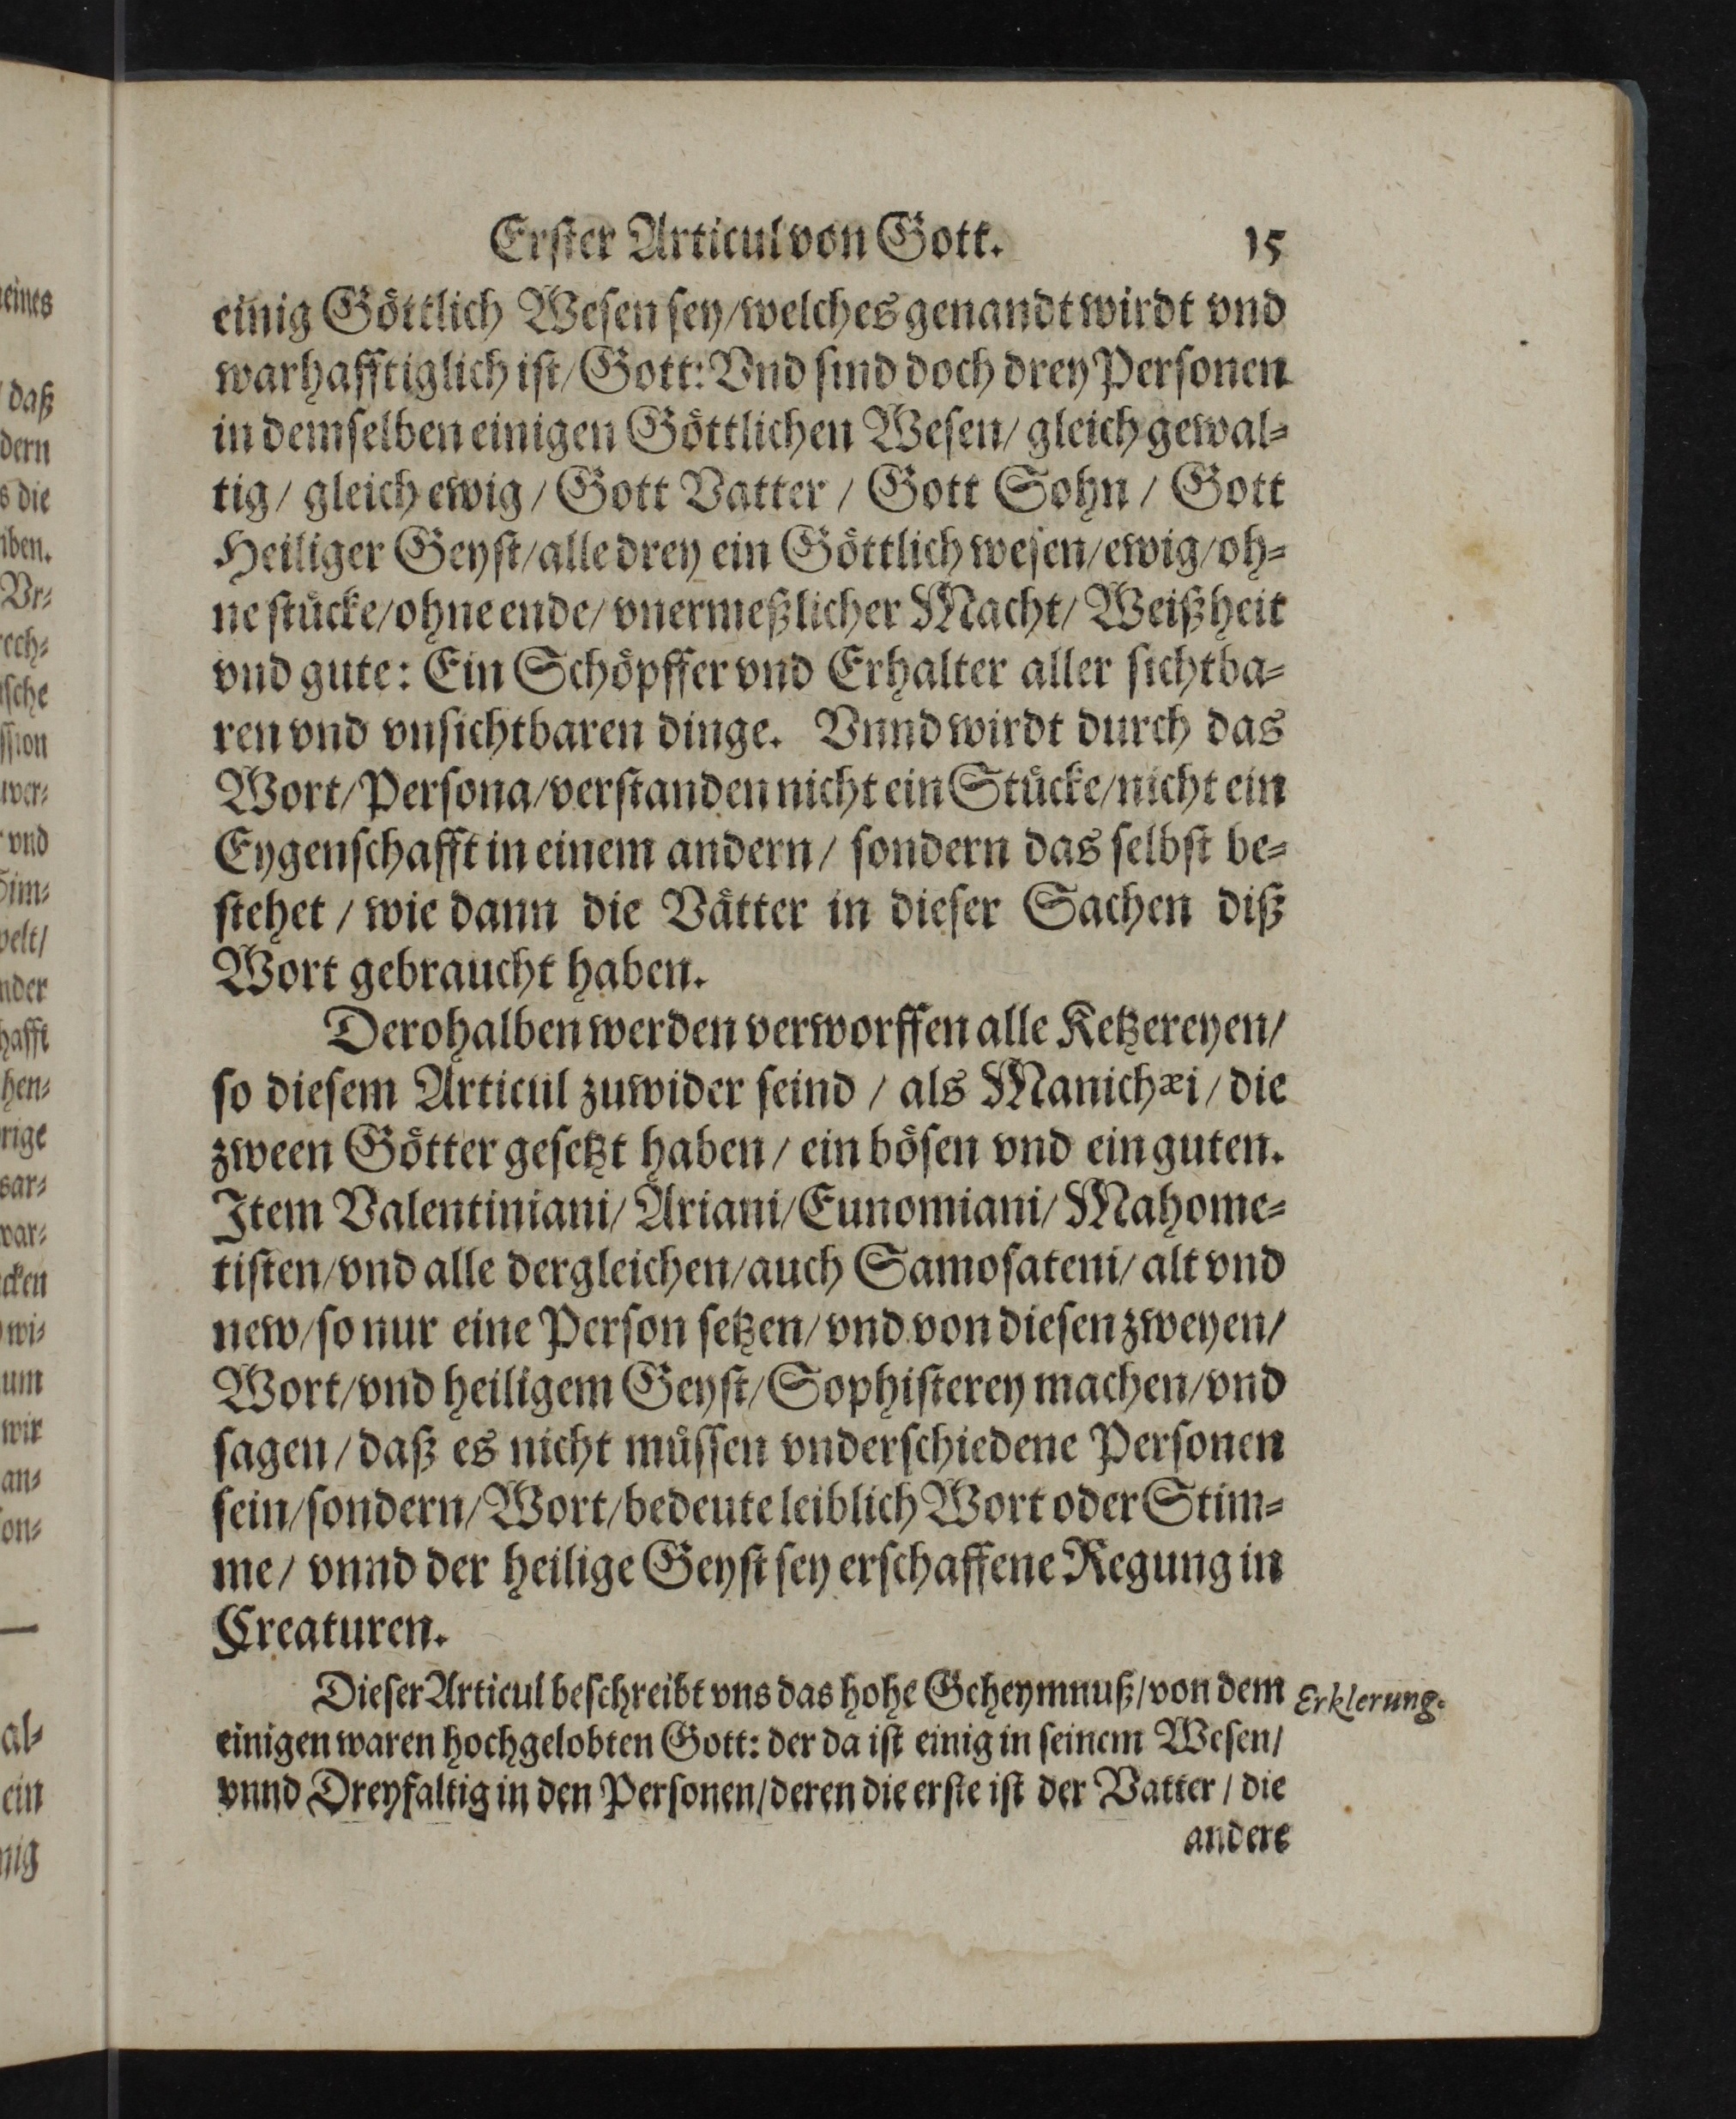 Erster Articul von Gott. 15
einig Göttlich Wesen sey/welches genandt wirdt vnd
warhafftiglich ist/Gott: Vnd sind doch drey Personen
in demselben einigen Göttlichen Wesen/ gleich gewal-
tig/ gleich ewig/ Gott Vatter / Gott Sohn / Gott
Heiliger Geyst/alle drey ein Göttlich wesen/ewig/oh-
ne stücke/ohne ende/ vnermeßlicher Macht/ Weißheit
vnd gute: Ein Schöpffer vnd Erhalter aller sichtba-
ren vnd vnsichtbaren dinge. Vnnd wirdt durch das
Wort/Persona/verstanden nicht ein Stücke/nicht ein
Eygenschafft in einem andern/ sondern das selbst be-
stehet / wie dann die Vätter in dieser Sachen diß
Wort gebraucht haben.
Derohalben werden verworffen alle Ketzereyen/
so diesem Articul zuwider seind / als Manichæi/ die
zween Götter gesetzt haben/ ein bösen vnd ein guten.
Item Valentiniani/ Ariani/Eunomiani/ Mahome-
tisten/vnd alle dergleichen/auch Samosateni/ alt vnd
new/so nur eine Person setzen/vnd von diesen zweyen/
Wort/vnd heiligem Geyst/Sophisterey machen/vnd
sagen/daß es nicht müssen vnderschiedene Personen
sein/sondern/Wort/bedeute leiblich Wort oder Stim-
me/ vnnd der heilige Geyst sey erschaffene Regung in
Creaturen.
Dieser Articul beschreibt vns das hohe Geheymnuß/von dem Erklerung.
einigen waren hochgelobten Gott: der da ist einig in seinem Wesen/
vnnd Dreyfaltig in den Personen/deren die erste ist der Vatter / die
andere